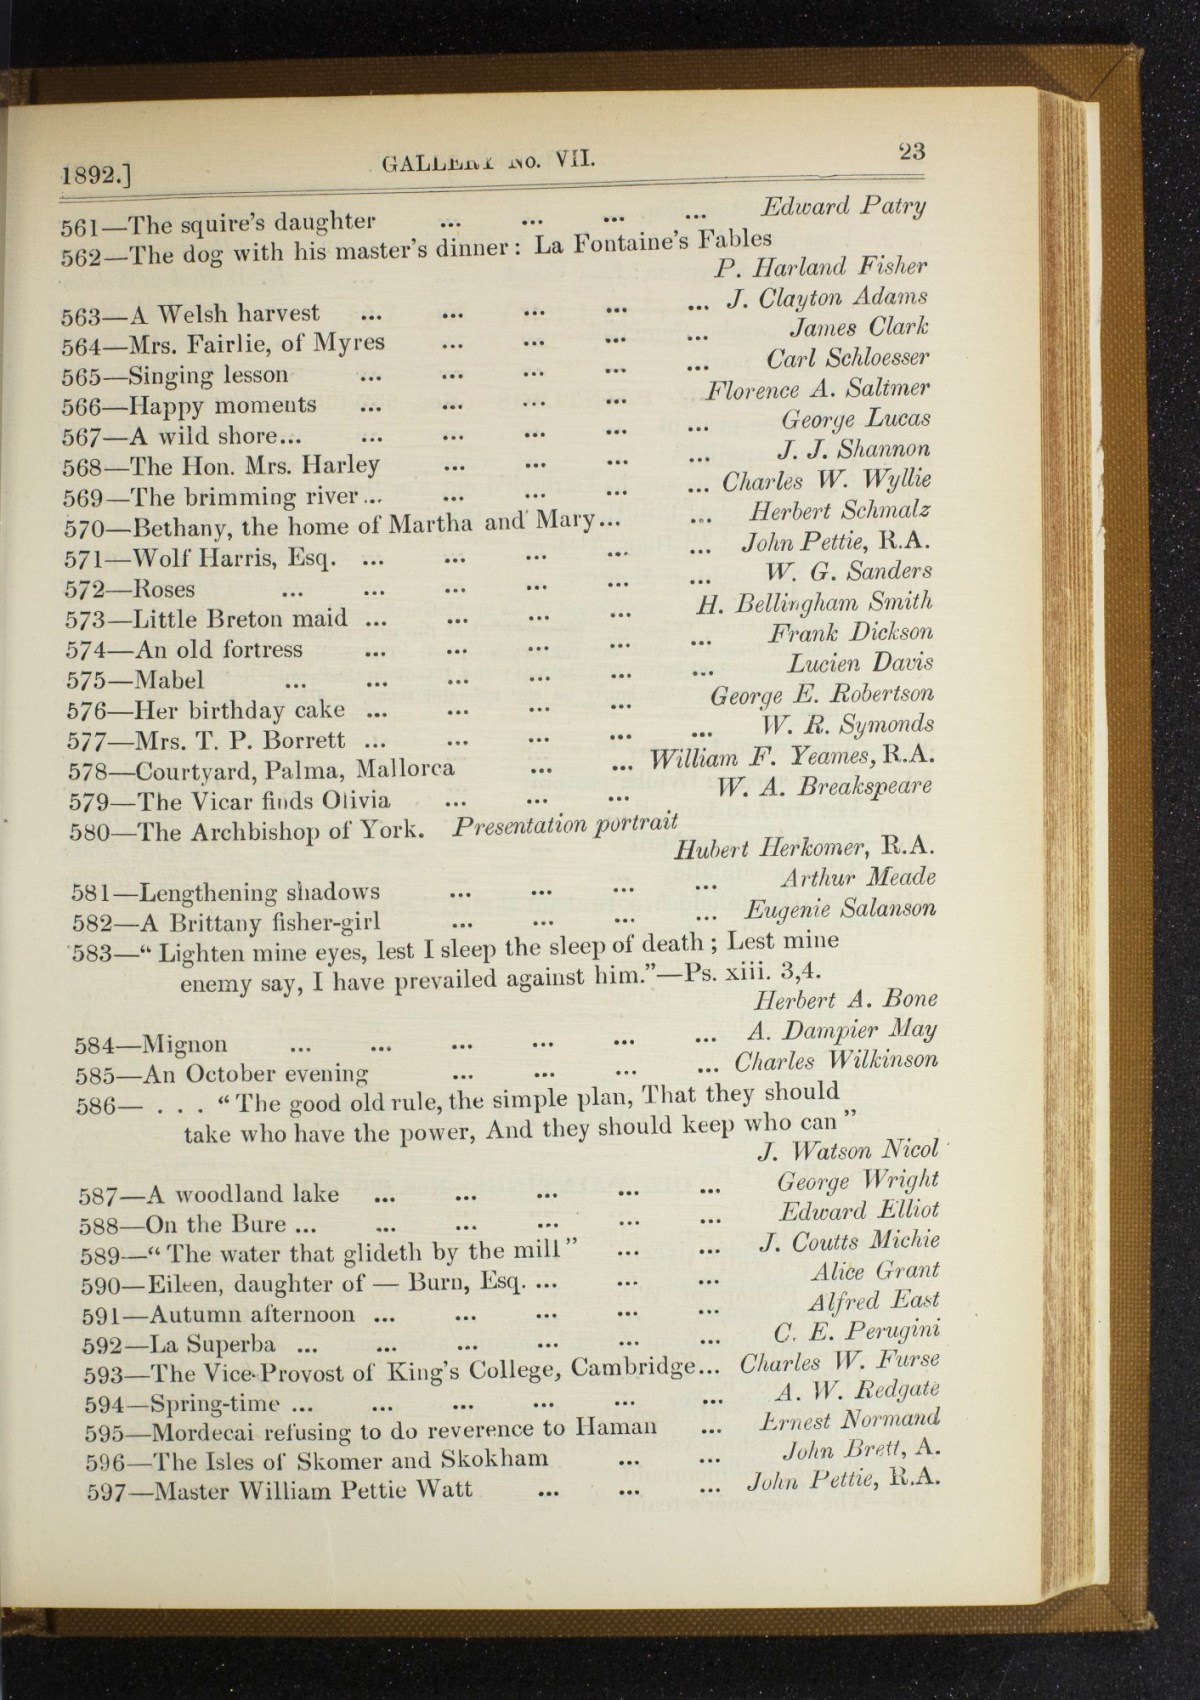 1892.] GALLERY NO. VII. 23
561—The squire's daughter ... ... ... ... Edward Patry
562—The dog with his master's dinner: La Fontaine's Fables
P. Harland Fisher
563—A Welsh harvest ... ... ... ... ... J. Clayton Adams
564—Mrs. Fairlie, of Myres ... ... ... ... James Clark
565—Singing lesson ... ... ... ... ... Carl Schloesser
566—Happy moments ... ... ... ... Florence A. Saltmer
567—A wild shore... ... ... ... ... ... George Lucas
568—The Hon. Mrs. Harley ... ... ... ... J. J. Shannon
569—The brimming river... ... ... ... ... Charles W. Wyllie
570—Bethany, the home of Martha and Mary... ... Herbert Schmalz
571—Wolf Harris, Esq. ... ... ... ... ... John Pettie, R.A.
572—Roses ... ... ... ... ... ... W. G. Sanders
573—Little Breton maid ... ... ... ... H. Bellingham Smith
574—An old fortress ... ... ... ... ... Frank Dickson
575—Mabel ... ... ... ... ... ... Lucien Davis
576—Her birthday cake ... ... ... ... George E. Robertson
577—Mrs. T. P. Borrett ... ... ... ... ... W. R. Symonds
578—Courtyard, Palma, Mallorca ... ... William F. Yeames, R.A.
579—The Vicar finds Olivia ... ... ... W. A. Breakspeare
580—The Archbishop of York. Presentation portrait
Hubert Herkomer, R.A.
581—Lengthening shadows ... ... ... ... Arthur Meade
582—A Brittany fisher-girl ... ... ... ... Eugenie Salanson
583—“ Lighten mine eyes, lest I sleep the sleep of death ; Lest mine
enemy say, I have prevailed against him.”—Ps. xiii. 3,4.
Herbert A. Bone
584—Mignon ... ... ... ... ... ... A. Dampier May
585—An October evening ... ... ... ... Charles Wilkinson
586— . . . “ The good old rule, the simple plan, That they should
take who have the power, And they should keep who can ”
J. Watson Nicol
587—A woodland lake ... ... ... ... ... George Wright
588—On the Bure ... ... ... ... ... ... Edward Elliot
589—“ The water that glideth by the mill ” ... ... J. Coutts Michie
590—Eileen, daughter of — Burn, Esq. ... ... ... Alice Grant
591—Autumn afternoon ... ... ... ... ... Alfred East
592—La Superba ... ... ... ... ... ... C. E. Perugini
593—The Vice-Provost of King's College, Cambridge... Charles W. Furse
594—Spring-time ... ... ... ... ... ... A. W. Redgate
595—Mordecai refusing to do reverence to Haman ... Ernest Normand
596—The Isles of Skomer and Skokham ... ... John Brett, A.
597—Master William Pettie Watt ... ... ... John Pettie, R.A.